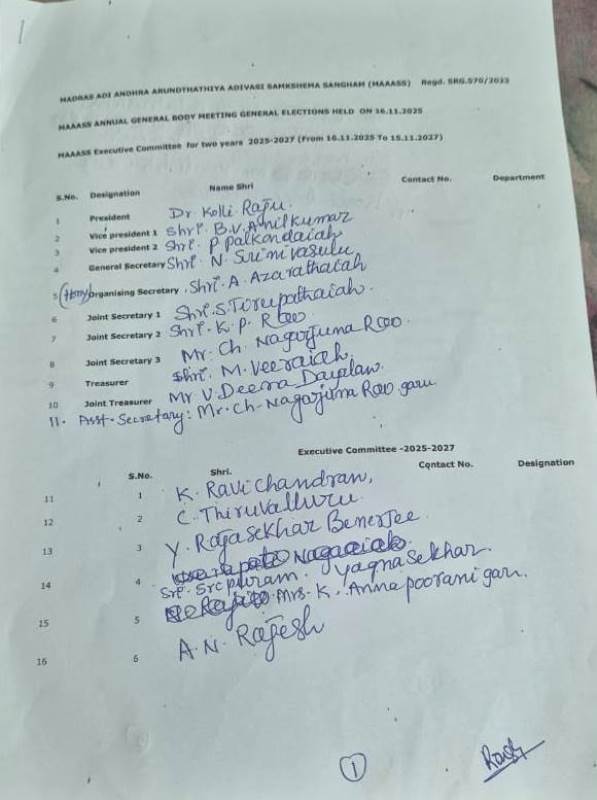 MADRAS ADI ANDHRA ARUNDTHATHIYA ADIVASI SAMKSHEMA SANGHAM (MAAASS) Regd. SRG.570/2025
MAAASS ANNUAL GENERAL BODY MEETING GENERAL ELECTIONS HELD ON 16.11.2025
MAAASS Executive Committee for two years 2025-2027 (From 16.11.2025 To 15.11.2027)
S.No. Designation Name Shri Contact No. Department
1 President Dr Kolli Raju.
2 Vice president 1 Shri. B.V. Anilkumar
3 Vice president 2 Shri. P Palkondaiah
4 General Secretary Shri. N. Srinivasulu
5 (Hony) Organising Secretary. Shri. A. Azarathaiah
6 Joint Secretary 1 Shri. S. Tirupathaiah.
7 Joint Secretary 2 Shri. K. P. Rao
8 Joint Secretary 3 Mr. Ch. Nagarjuna Rao.
9 Treasurer Shri. M. Veeraiah.
10 Joint Treasurer Mr V. Deena Dayalan.
11. Asst-Secretary: Mr. Ch- Nagarjuna Rao garu
Executive Committee -2025-2027
S.No. Shri. Contact No. Designation
11 1 K. Ravichandran,
12 2 C. Thiruvalluru
13 3 Y. Rajasekhar Benerjee
14 4 Sri. Sripuram. Yagnasekhar.
15 5 Mrs. K. Annapoorani garu.
16 6 A. N. Rajesh
1